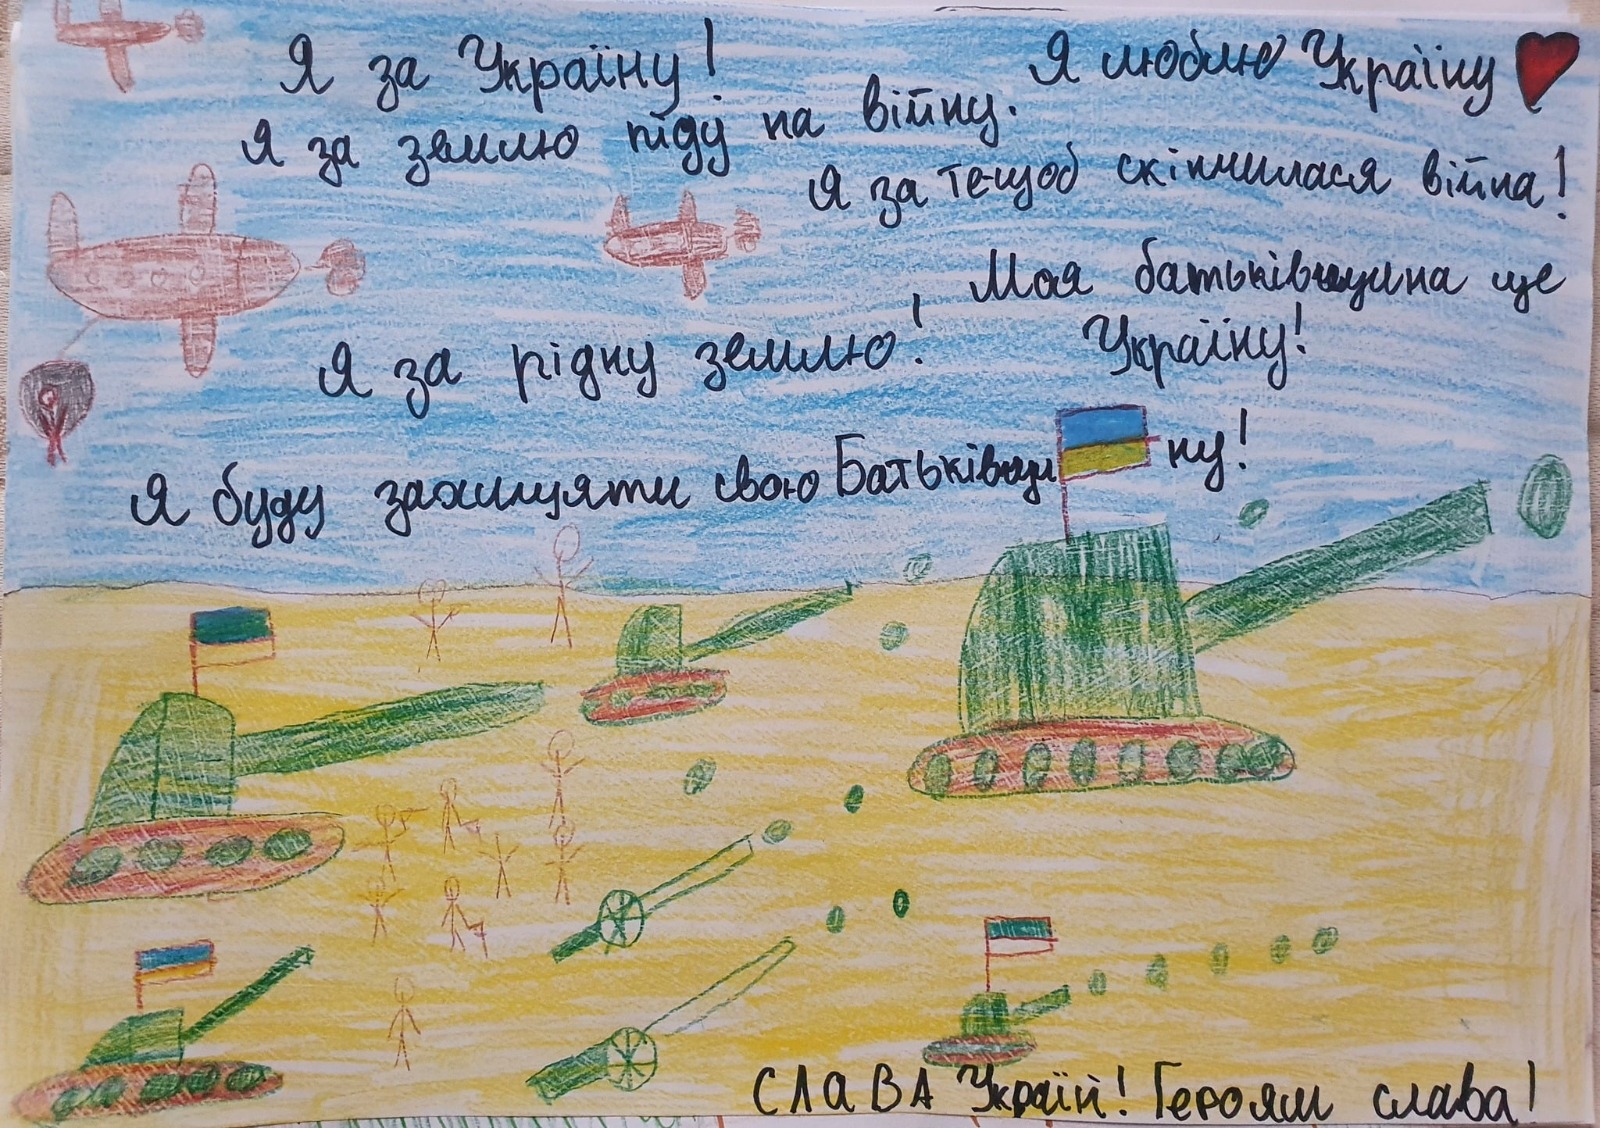 Я за Україну!
Я люблю Україну
Я за землю піду на війну.
Я за тещоб скінчилася війна!
Моя батьківщина це
Україну!
Я за рідну землю!
Я буду захищяти свою Батьківщину!
СЛАВА Україй! Героям слава!